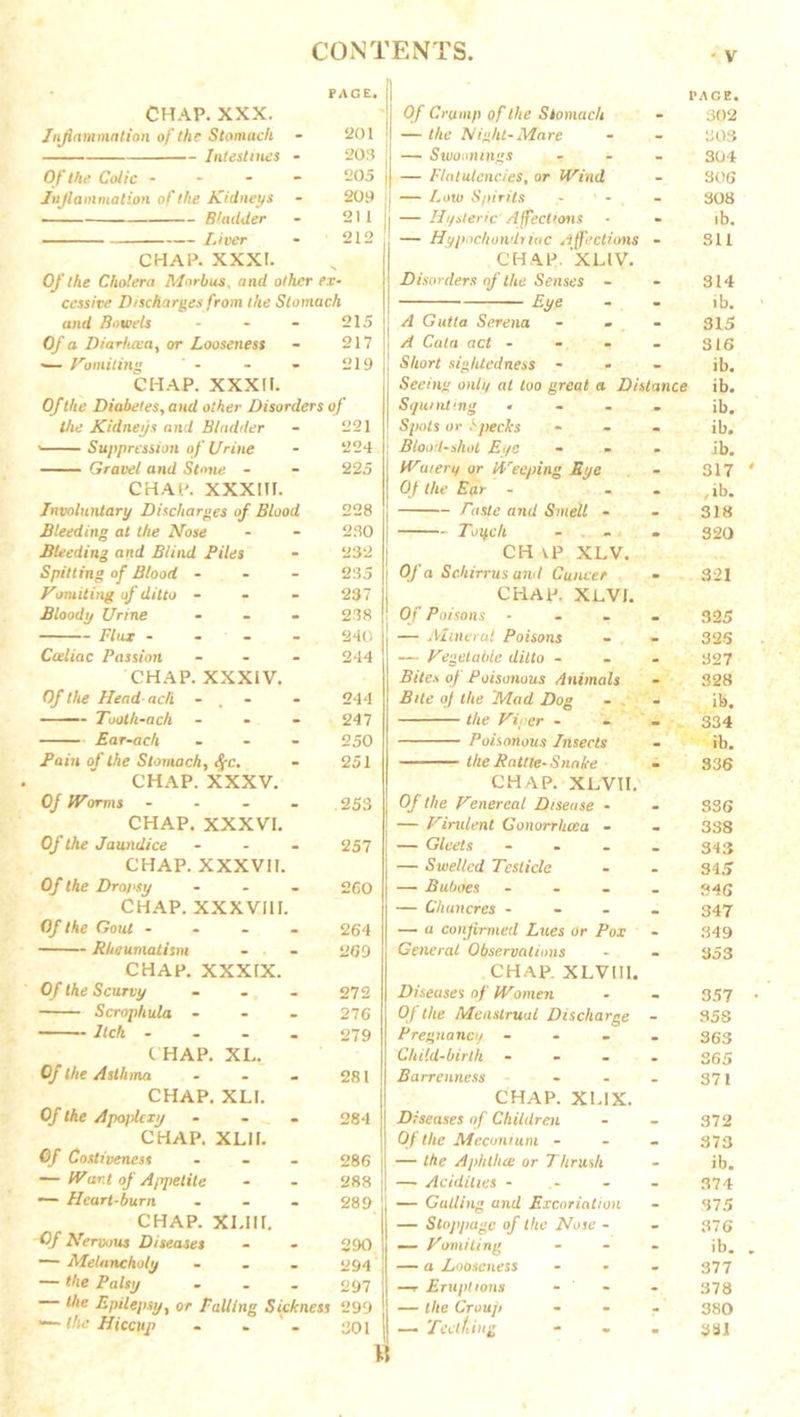 CONTENTS.
V
PAGE.
CHAP. XXX.
Inflammation of the Stomach - 201
Intestines - 203
Of the Colic - - - - 205
Inflammation of the Kidneys - 209
Bladder - 211
Liver - 212
CHAP. XXXI.
Of the Cholera Morbus, and other ex-
cessive Discharges from the Stomach
and Bowels - - - 215
Of a Diarhœa, or Looseness - 217
— Vomiting - - - 219
CHAP. XXXII.
Of the Diabetes, and other Disorders of
the Kidneys and Bladder - 221
—— Suppression of Urine - 224
—— Gravel and Stone - - 225
CHAP. XXXIII.
Involuntary Discharges of Blood 228
Bleeding at the Nose - - 230
Bleeding and Blind Piles - 232
Spitting of Blood - - - 235
Vomiting of ditto - - - 237
Bloody Urine - - - 238
—— Flux - - - - 240
Cœliac Passion - - - 244
CHAP. XXXIV.
Of the Head-ach - - - 244
—— Tooth-ach - - - 247
—— Ear-ach - - - 250
Pain of the Stomach, &c. - 251
CHAP. XXXV.
Of Worms - - - - 253
CHAP. XXXVI.
Of the Jaundice - - - 257
CHAP. XXXVII.
Of the Dropsy - - - 260
CHAP. XXXVIII.
Of the Gout - - - - 264
—— Rheumatism - - 269
CHAP. XXXIX.
Of the Scurvy - - - 272
—— Scrophula - - - 276
—— Itch - - - - 279
CHAP. XL.
Of the Asthma - - - 281
CHAP. XLI.
Of the Apoplexy - - - 284
CHAP. XLII.
Of Costiveness - - - 286
— Want of Appetite - - 288
— Heart-burn - - - 289
CHAP. XLIII.
Of Nervous Diseases - - 290
— Melancholy - - - 294
— the Palsy - - - 297
— the Epilepsy, or Falling Sickness 299
— the Hiccup - - - 301
PAGE.
Of Cramp of the Stomach - 302
— the Night-Mare - - 303
— Swoonings - - - 304
— Flatulencies, or Wind - 306
— Low Spirits - - - 308
— Hysteric Affections - - ib.
— Hypochondriac Affections - 311
CHAP. XLIV.
Disorders of the Senses - - 314
Eye - - ib.
A Gutta Serena - - - 315
A Cata act - - - - 316
Short sightedness - - - ib.
Seeing only at too great a Distance ib.
Squinting - - - - ib.
Spots or Specks - - - ib.
Blood-shot Eye - - - ib.
Watery or Weeping Eye - 317
Of the Ear - - - ib.
—— Taste and Smell - - 318
—— Touch - - - 320
CHAP XLV.
Of a Schirrus and Cancer - 321
CHAP. XLVI.
Of Poisons - - - - 325
— Mineral Poisons - - 326
— Vegetable ditto - - - 327
Bites of Poisonous Animals - 328
Bite of the Mad Dog - - ib.
the Viper - - - 334
Poisonous Insects - ib.
the Rattle-Snake - 336
CHAP. XLVII.
Of the Venereal Disease - - 336
— Virulent Gonorrhœa - - 338
— Gleets - - - - 343
— Swelled Testicle - - 345
— Buboes - - - - 346
— Chancres - - - - 347
— a confirmed Lues or Pox - 349
General Observations - - 353
CHAP. XLVIII.
Diseases of Women - - 357
Of the Menstrual Discharge - 358
Pregnancy - - - - 363
Child-birth - - - - 365
Barrenness - - - - 371
CHAP. XLIX.
Diseases of Children - - 372
Of the Meconium - - - 373
— the Aphthæ or Thrush - ib.
— Acidities - - - - 374
— Galling and Excoriation - 375
— Stoppage of the Nose - - 376
— Vomiting - - - ib.
— a Looseness - - - 377
— Eruptions - - - 378
— the Croup - - - 380
— Teething - - - 381
B